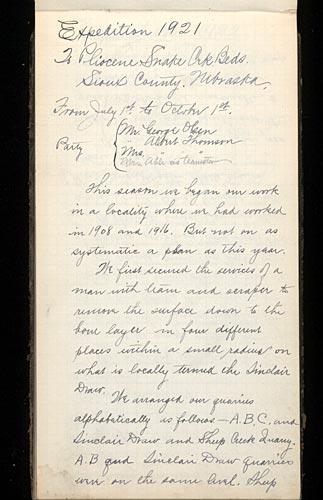 Expedition 1921
To Pliocene Snake Crk Beds.
Sioux County, Nebraska.
From July 1st. to October 1st.
Party
Mr. George Olsen
Albert Thomson
Mrs. "
This season we began our work
in a locality where we had worked
in 1908 and 1916. But not on as
systematic a plan as this year.
We first secured the services of a
man with team and scraper to
remove the surface down to the
bone layer in four different
places within a small radius on
what is locally termed the Sinclair
Draw.
We arranged our quarries
alphabetically is follows — A. B. C. and
Sinclair Draw and Sheep Creek Quarry.
A. B and Sinclair Draw quarries
were on the same level. Sheep